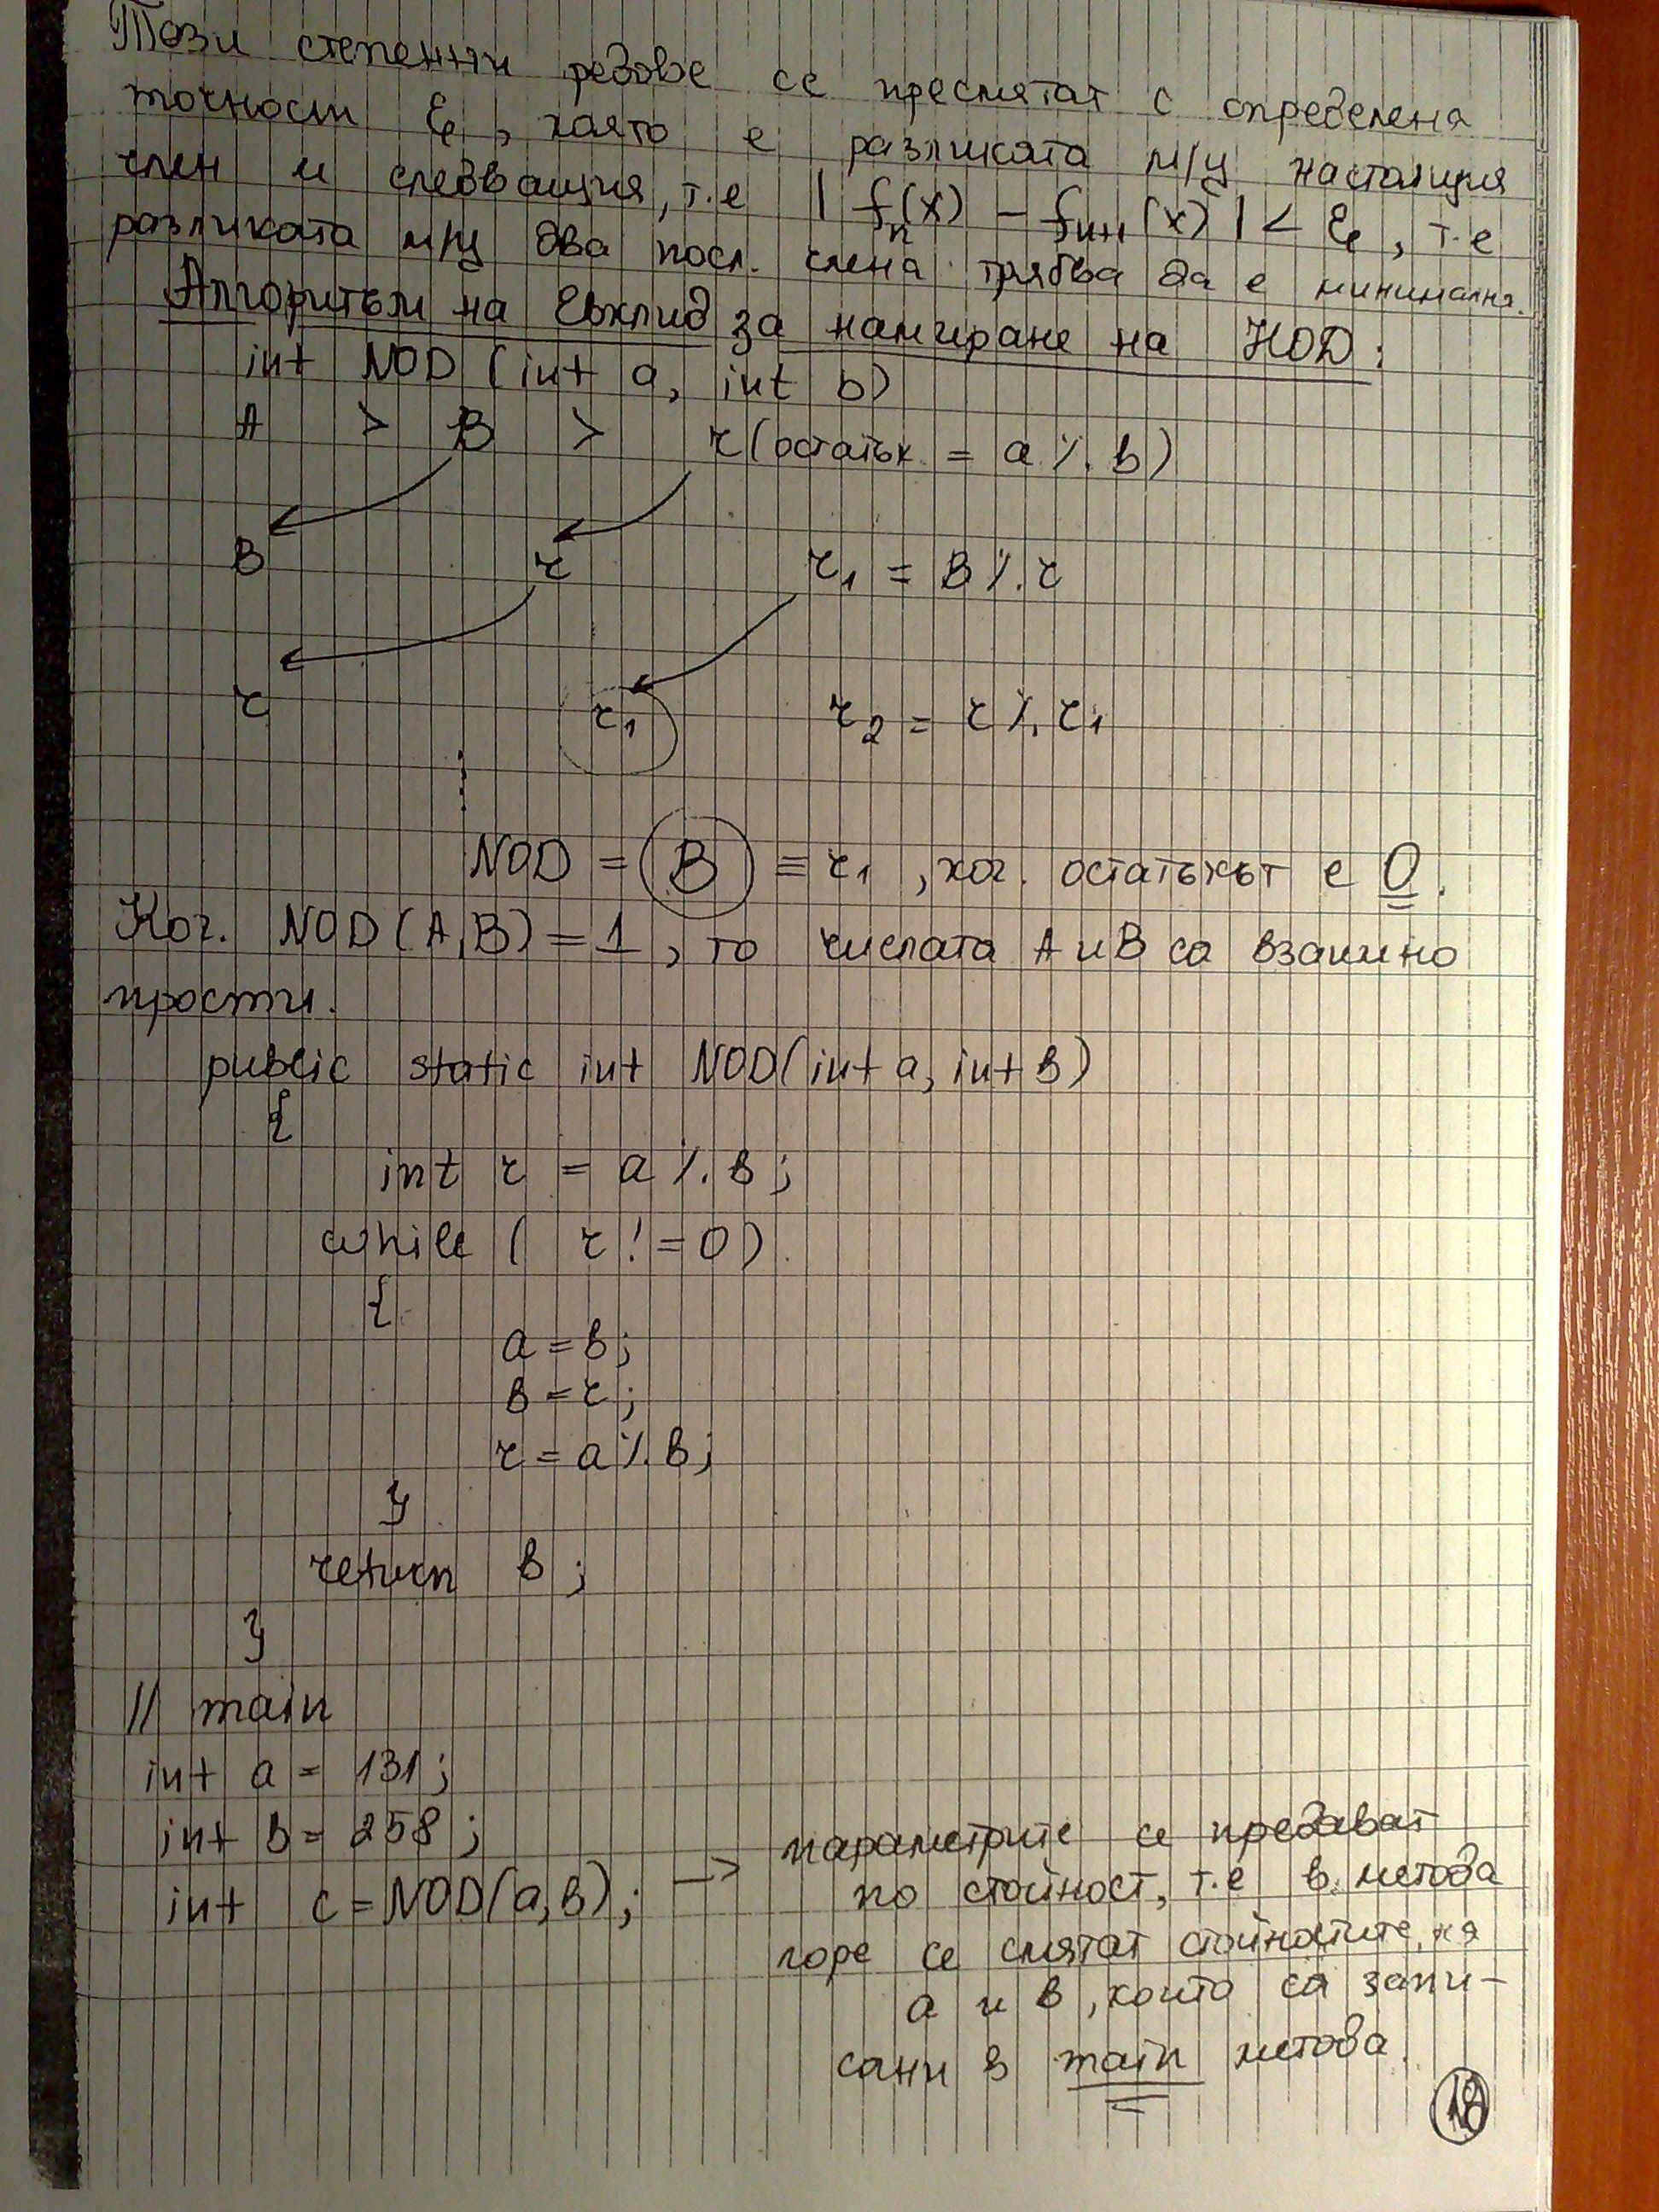 Тези степенни редове се пресмятат с определена
точност ε, която е разликата м/у настоящия
член и следващия, т.е |fn(x) - fn+1(x)| < ε, т.е
разликата м/у два посл. члена трябва да е минимална.
Алгоритъм на Евклид за намиране на НОД:
int NOD (int a, int b)
A > B > r (остатък = a % b)
B r r1 = B % r
r r1 r2 = r % r1
NOD = B = r1, ког. остатъкът е 0.
Ког. NOD(A,B) = 1, то числата A и B са взаимно
прости.
public static int NOD(int a, int b)
{
int r = a % b;
while ( r != 0)
{
a = b;
b = r;
r = a % b;
}
return b;
}
// main
int a = 131;
int b = 258;
int c = NOD(a,b); → параметрите се предават
по стойност, т.е в метода
горе се смятат стойностите на
a и b, които са запи-
сани в main метода.
18